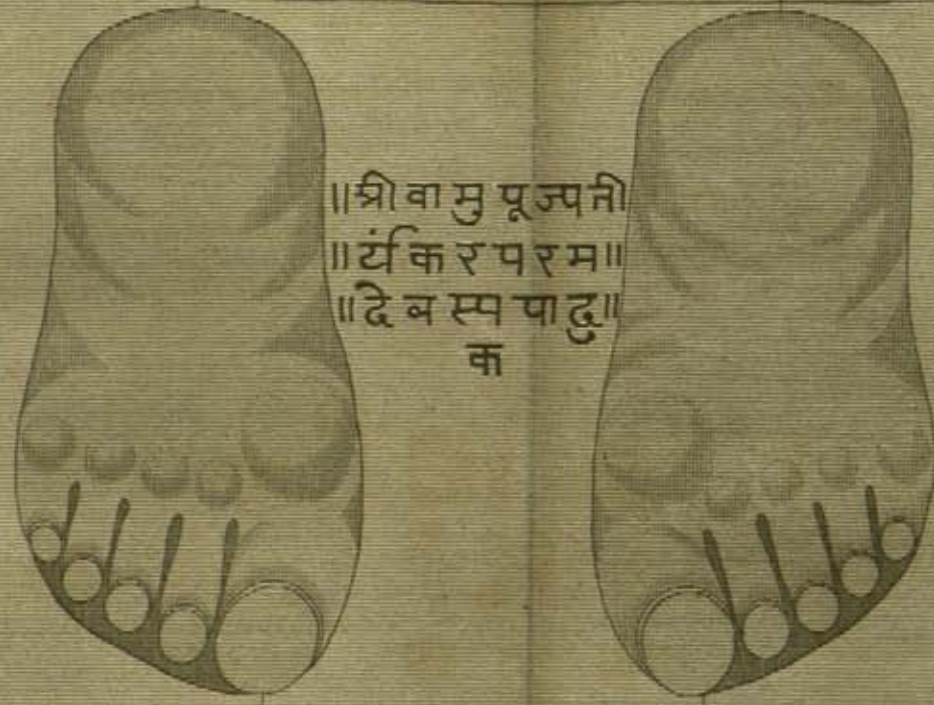 ॥श्री वा मु पू ज्य ती
॥र्यं क र प र म॥
॥दे व स्य पा दु॥
क